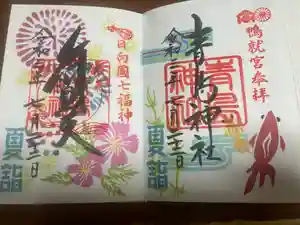 鴨就宮参拝
青島神社
青島神社
令和三年七月二十二日
夏詣
日向國七福神
令和三年七月二十二日
夏詣